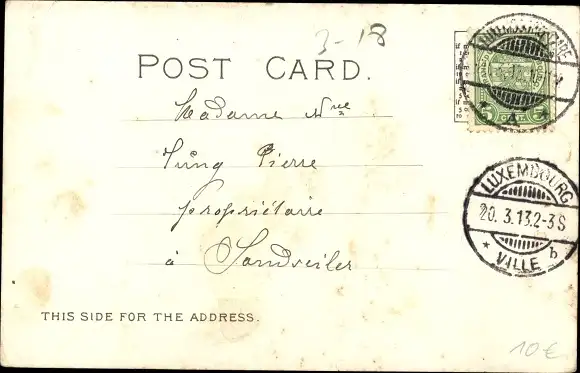 3-18
POST CARD.
Madame Vve
Jung Pierre
propriétaire
à Sandweiler
THIS SIDE FOR THE ADDRESS.
5 5
LUXEMBOURG
20. 3.13.2-3S
* VILLE b
10€